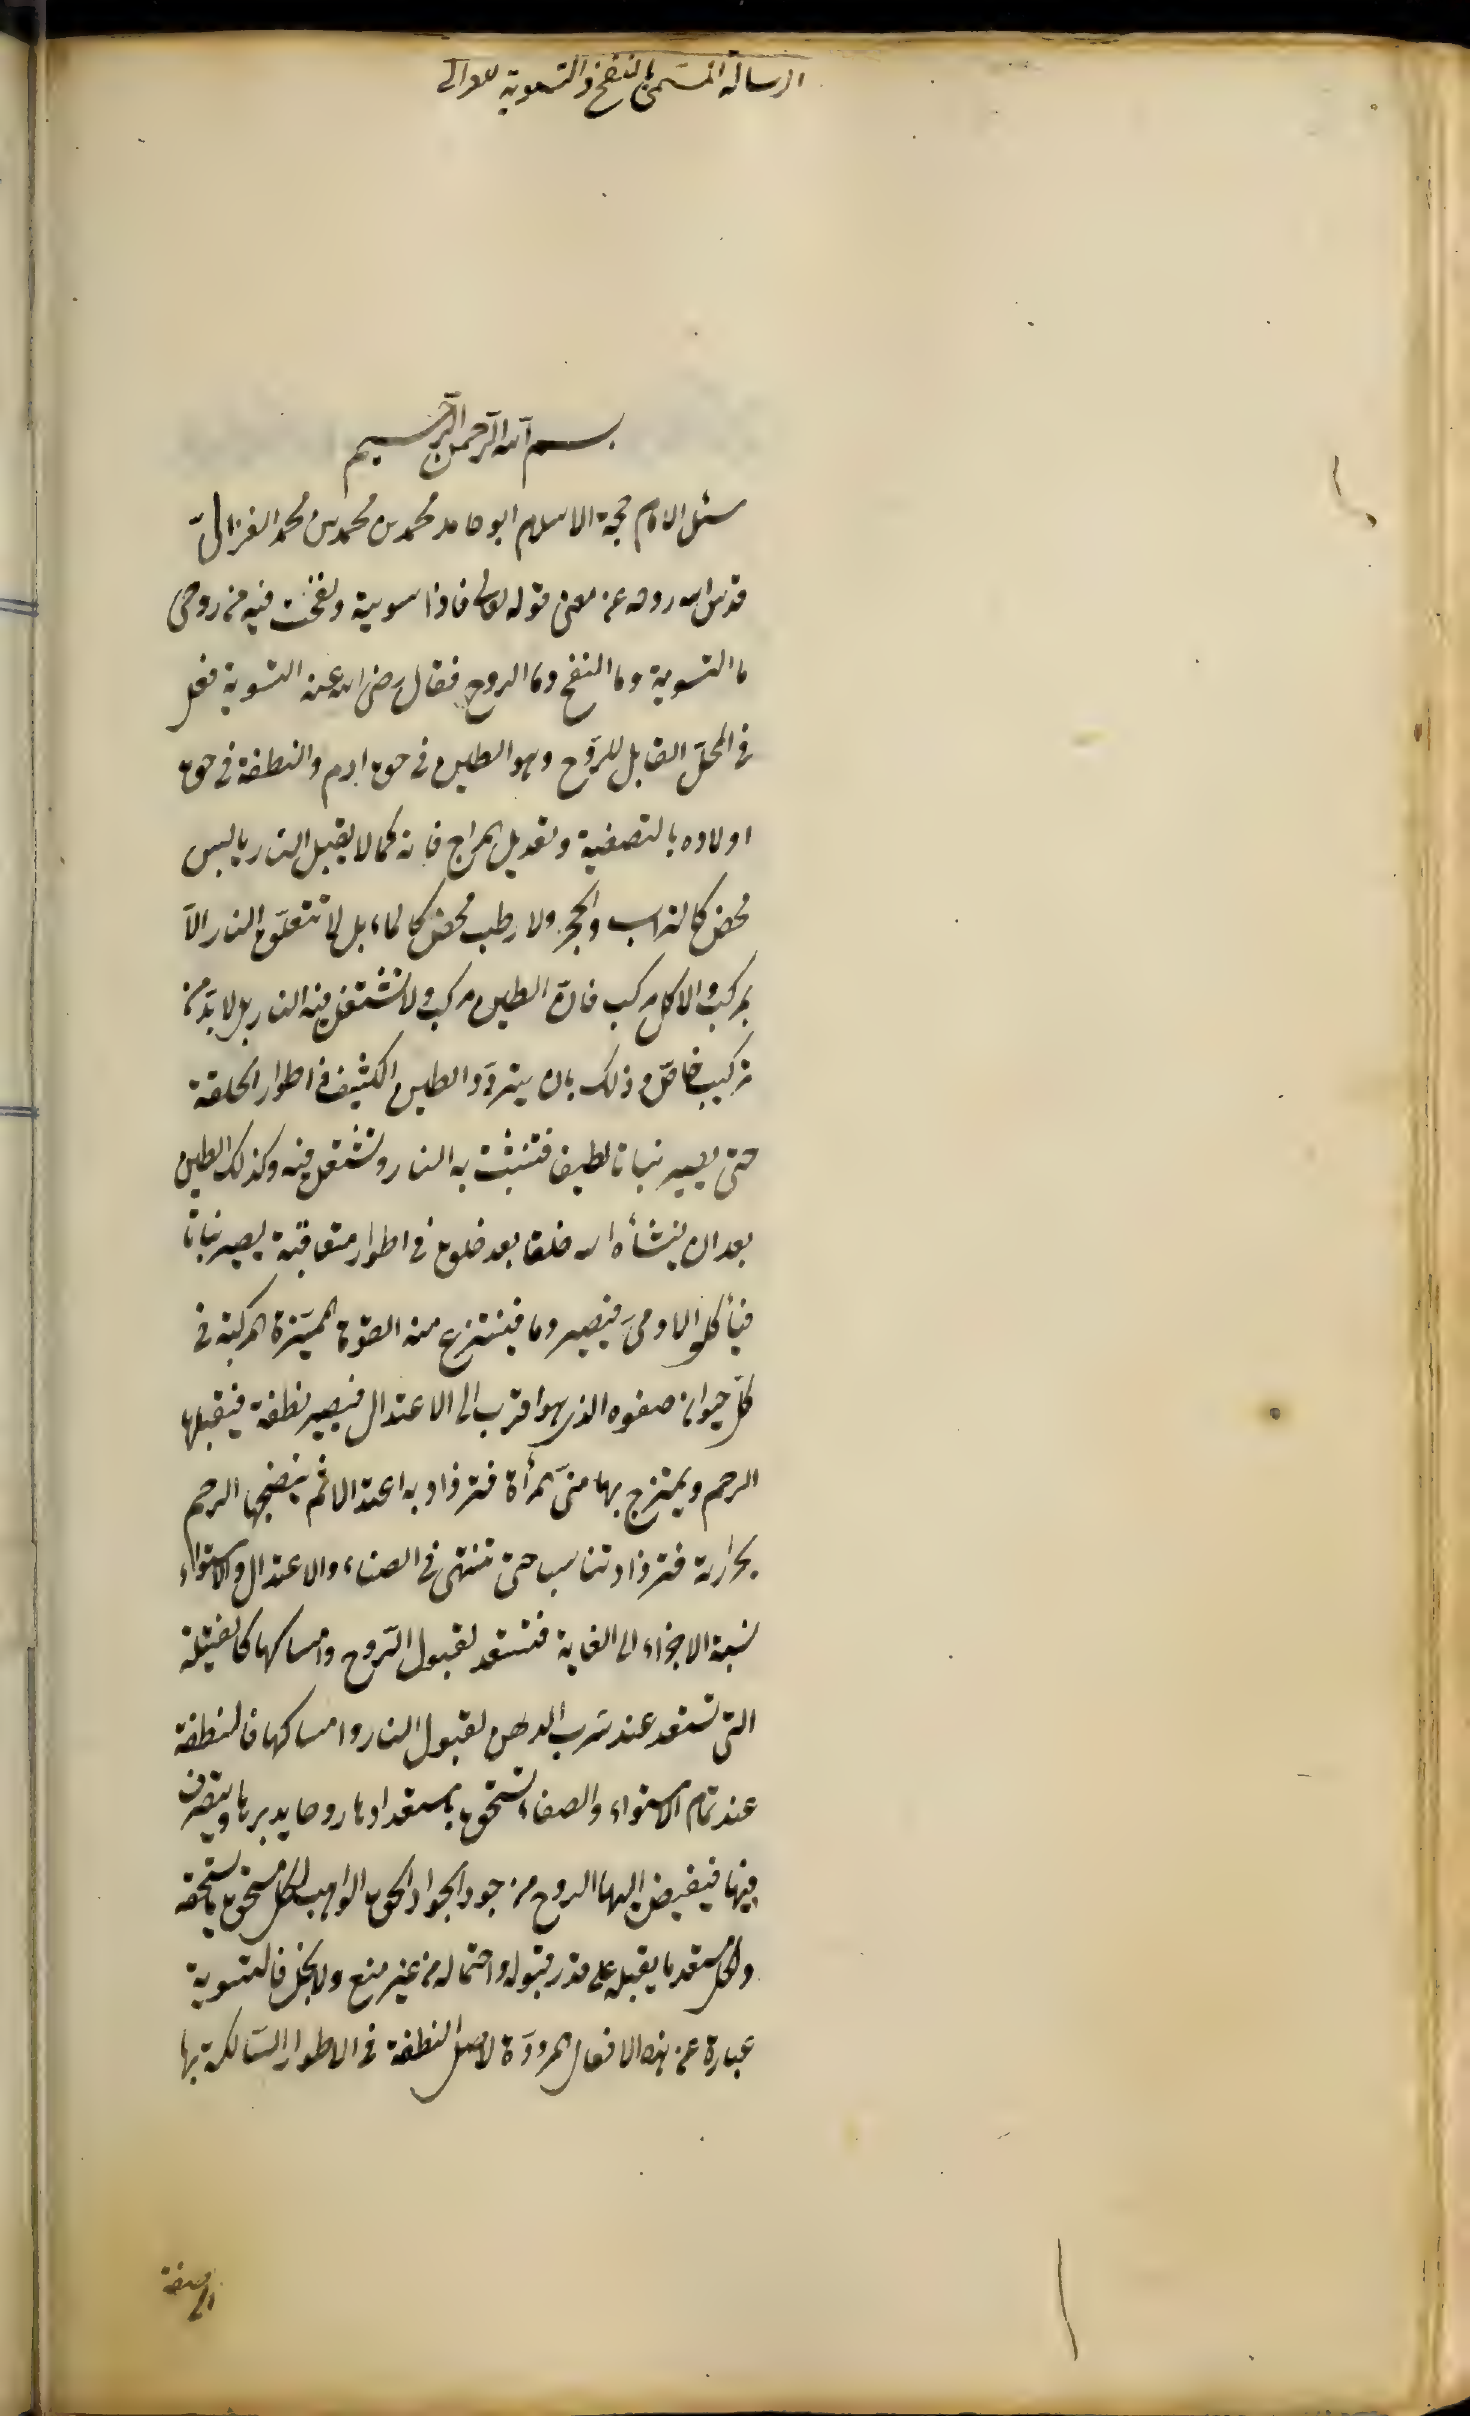 الرسالة المسمى بالنفخ والتسوية للغزالى
بسم الله الرحمن الرحيم
سئل الامام حجة الاسلام ابو حامد محمد بن محمد بن محمد الغزالىّ
قدس الله روحه عن معنى قوله تعالى فاذا سويته ونفخت فيه من روحى
ما التسوية وما النفخ وما الروح فقال رضى الله عنه التسوية فعل
فى المحلّ القابل للرّوح وهو الطين فى حق ادم والنطفة فى حق
اولاده بالتصفية وتعديل المزاج فانه كما لا يقبل النار يابس
محض كالتراب والحجر ولا رطب محض كالماء بل لا تتعلّق النار الّا
بمركب ولا كل مركب فانّ الطين مركب ولا تشتعل فيه النار بل لا بدّ من
تركيب خاصّ وذلك بان يتردّد الطين الكثيف فى اطوار الخلقة
حتى يصير نباتا لطيفا فتتشبث به النار وتشتعل فيه وكذلك الطين
بعد ان ينشأه الله خلقا بعد خلق فى اطوار متعاقبة يصير نباتا
فيأكله الادمىّ فيصير دما فينتزع منه القوة المميّزة المركبة فى
كلّ حيوان صفوه الذى هو اقرب الى الاعتدال فيصير نطفة فيقبلها
الرحم ويمتزج بها منىّ المرأة فتزداد به اعتدالا ثم ينضجها الرحم
بحرارته فتزداد تناسب حتى تنتهى فى الصفاء والاعتدال والاستواء
نسبة الاجزاء الى الغاية فتستعد لقبول الرّوح وامساكها كالفتيلة
التى تستعد عند شرب الدهن لقبول النار وامساكها فالنطفة
عند تمام الاستواء والصفاء تستحق باستعدادها روحا يدبرها ويتصرف
فيها فيفيض اليها الروح من جود الجواد الحق الواهب لكل مستحق ما يستحقه
ولكل مستعد ما يقبله على قدر قبوله واحتماله من غير منع ولا بخل فالتسوية
عبارة عن هذه الافعال المردوّة لاصل النطفة فى الاطوار السّالكة بها
الى صفة